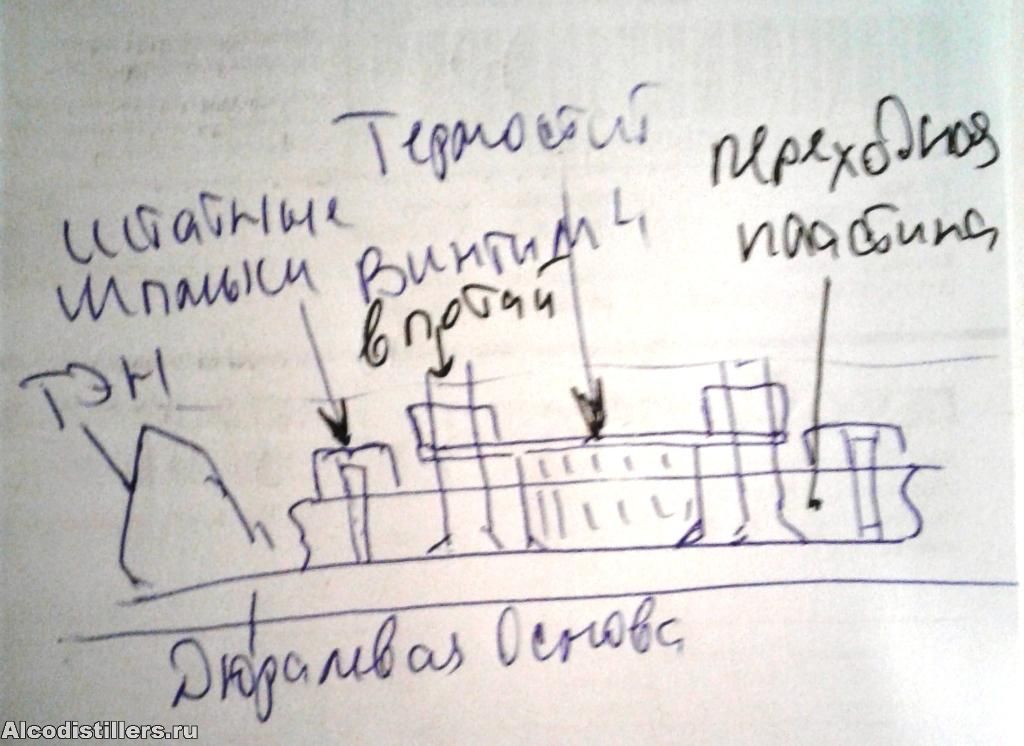 Термостат
переходная
пластина
штатные
шпильки
винты М4
в потай
ТЭН
Дюралевая Основа
Alcodistillers.ru